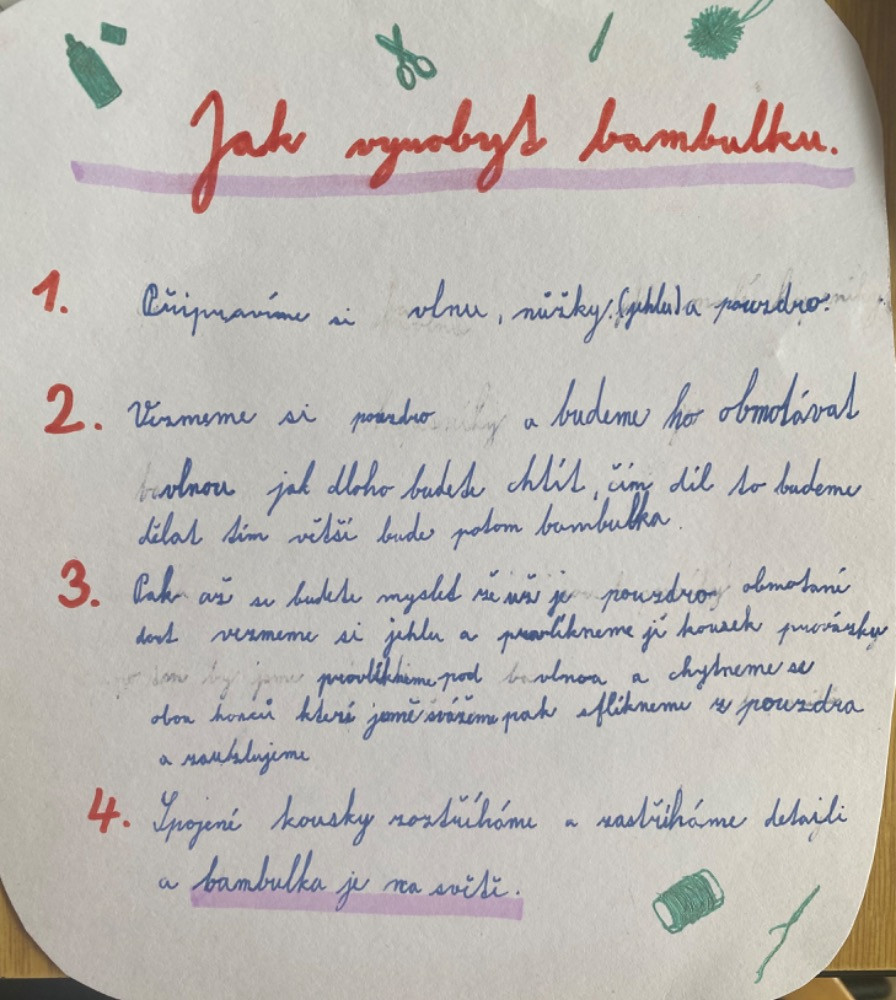 Jak vyrobyt bambulku.
1. Připravíme si vlnu, nůžky, (jehlu) a pouzdro.
2. Vezmeme si pouzdro a budeme ho obmotávat
vlnou jak dloho budete chtít, čím díl to budeme
dělat tím větší bude potom bambulka.
3. Pak až se budete myslet že už je pouzdro obmotaní
dost vezmeme si jehlu a provlíkneme jí kousek provázky
provlíkneme pod vlnou a chytneme se
obou konců kterí jemě svážeme pak sflíkneme z pouzdra
a zauzlujeme
4. Spojené kousky roztříháme a zastříháme detajli
a bambulka je na světě.